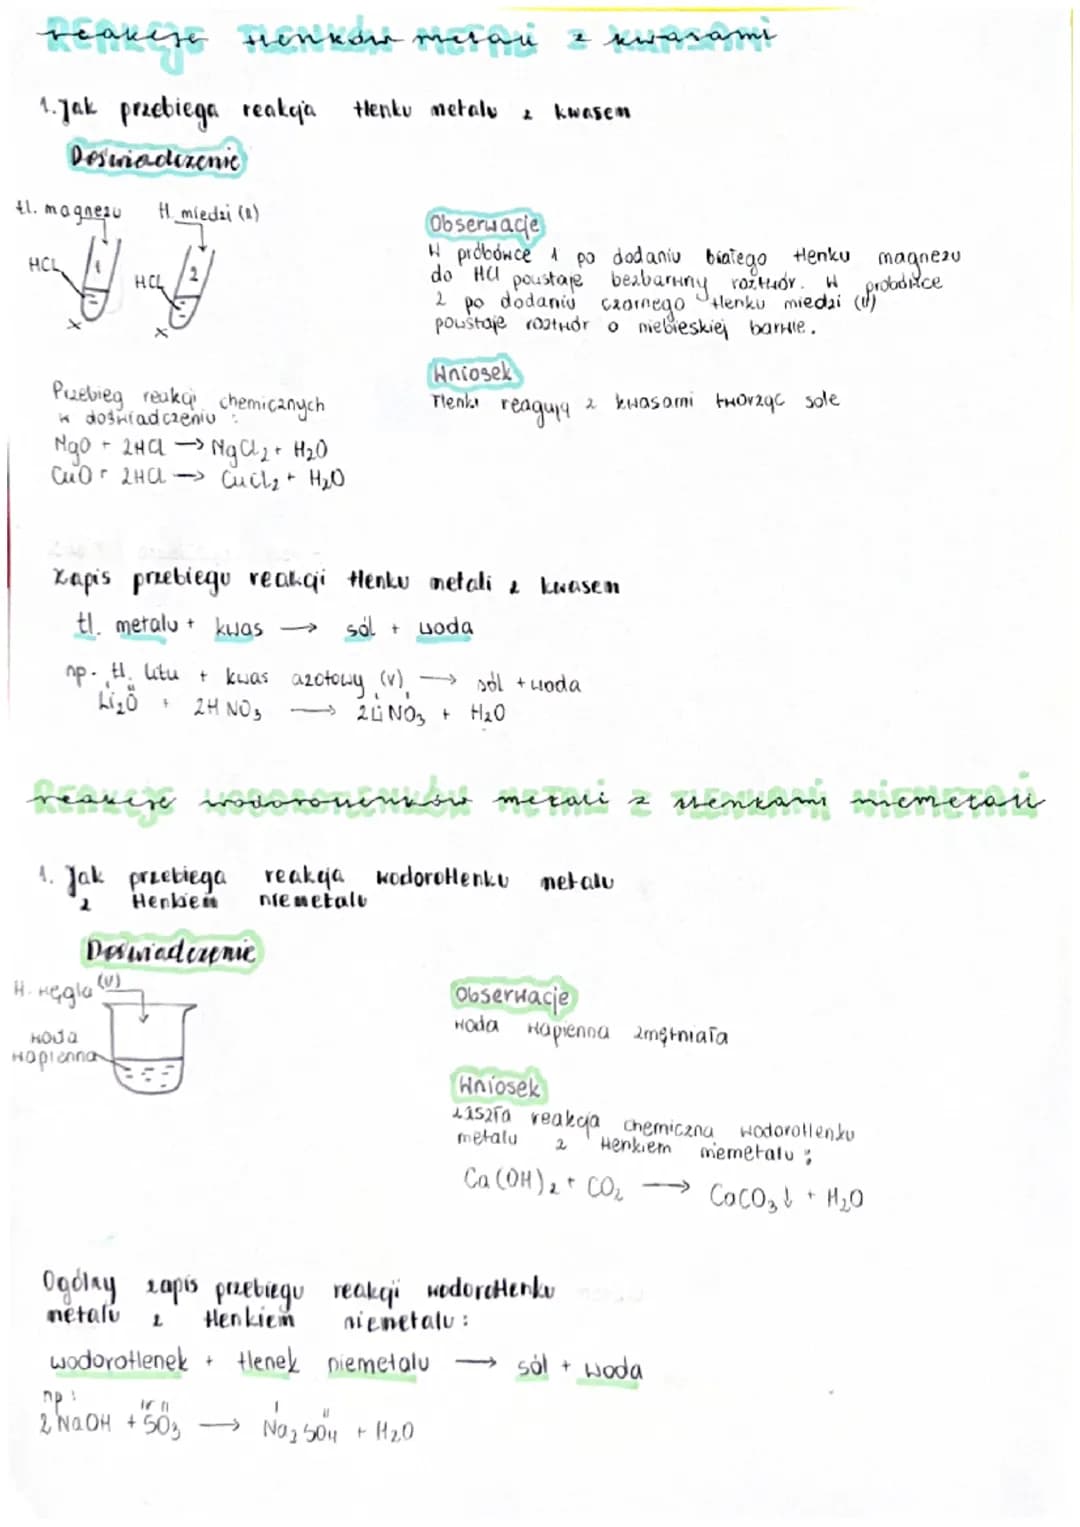 reakcje tlenków metali z kwasami
1. Jak przebiega reakcja tlenku metalu z kwasem
Doświadczenie
tl. magnezu tl. miedzi (II)
HCl 1 HCl 2
Obserwacje
W próbówce 1 po dodaniu białego tlenku magnezu
do HCl powstaje bezbarwny roztwór. W probówce
2 po dodaniu czarnego tlenku miedzi (II)
powstaje roztwór o niebieskiej barwie.
Wniosek
Tlenki reagują z kwasami tworząc sole
Przebieg reakcji chemicznych
w doświadczeniu :
MgO + 2HCl → MgCl₂ + H₂O
CuO + 2HCl → CuCl₂ + H₂O
Zapis przebiegu reakcji tlenku metali z kwasem
tl. metalu + kwas → sól + woda
np. tl. litu + kwas azotowy (V) → sól + woda
Li₂O + 2HNO₃ → 2LiNO₃ + H₂O
reakcje wodorotlenków metali z tlenkami niemetali
1. Jak przebiega reakcja wodorotlenku metalu
z tlenkiem niemetalu
Doświadczenie
tl. węgla (IV)
woda
wapienna
Obserwacje
woda wapienna zmętniała
Wniosek
zaszła reakcja chemiczna wodorotlenku
metalu z tlenkiem niemetalu :
Ca(OH)₂ + CO₂ → CaCO₃↓ + H₂O
Ogólny zapis przebiegu reakcji wodorotlenku
metalu z tlenkiem niemetalu :
wodorotlenek + tlenek niemetalu → sól + woda
np :
2NaOH + SO₃ → Na₂SO₄ + H₂O